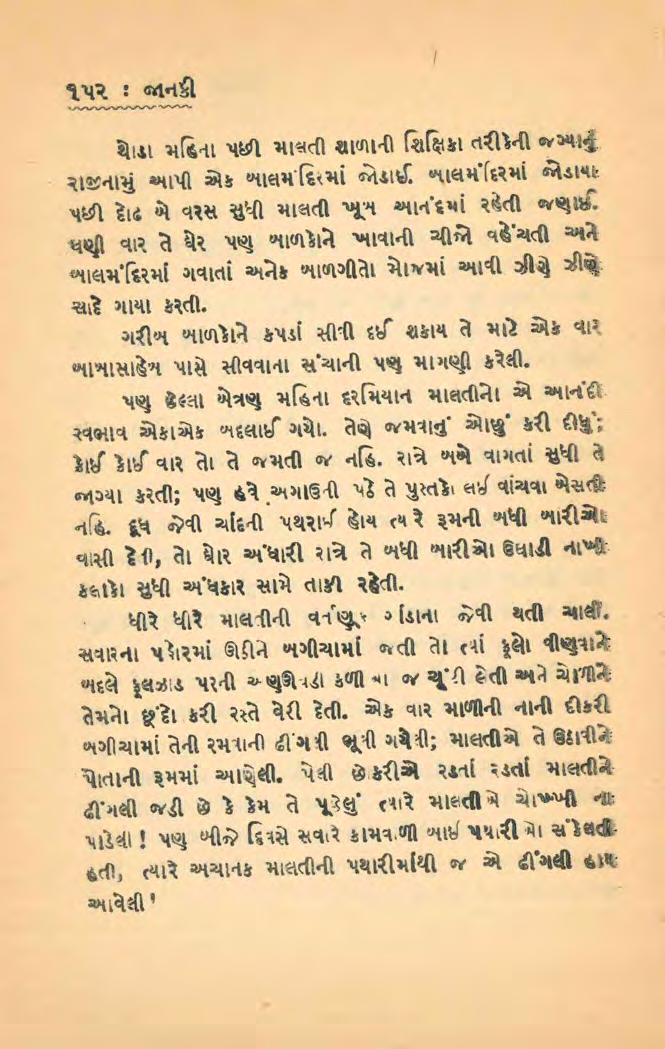 ૧૫૨ : જાનકી
થોડા મહિના પછી માલતી શાળાની શિક્ષિકા તરીકેની જગ્યાનું
રાજીનામું આપી એક બાલમંદિરમાં જોડાઈ. બાલમંદિરમાં જોડાયા
પછી દોઢ બે વરસ સુધી માલતી ખૂબ આનંદમાં રહેતી જણાઈ.
ઘણી વાર તે ઘેર પણ બાળકોને ખાવાની ચીજો વહેંચતી અને
બાલમંદિરમાં ગવાતાં અનેક બાળગીતો મોજમાં આવી ઝીણે ઝીણે
સાદે ગાયા કરતી.
ગરીબ બાળકોને કપડાં સીવી દઈ શકાય તે માટે એક વાર
બાબાસાહેબ પાસે સીવવાના સંચાની પણ માગણી કરેલી.
પણ છેલ્લા બેત્રણ મહિના દરમિયાન માલતીનો એ આનંદી
સ્વભાવ એકાએક બદલાઈ ગયો. તેણે જમવાનું ઓછું કરી દીધું;
કોઈ કોઈ વાર તો તે જમતી જ નહિ. રાત્રે બબે વાગતાં સુધી તે
જાગ્યા કરતી; પણ હવે અગાઉની પઠે તે પુસ્તકો લઈ વાંચવા બેસતી
નહિ. દૂધ જેવી ચાંદની પથરાઈ હોય ત્યારે રૂમની બધી બારીઓ
વાસી દેતી, તો ઘોર અંધારી રાત્રે તે બધી બારીઓ ઉઘાડી નાખી
કલાકો સુધી અંધકાર સામે તાકી રહેતી.
ધીરે ધીરે માલતીની વર્તણૂક ગાંડાના જેવી થતી ચાલી.
સવારના પહોરમાં ઊઠીને બગીચામાં જતી તો ત્યાં ફૂલો વીણવાને
બદલે ફૂલઝાડ પરની અણઊઘડી કળીઓ જ ચૂંટી લેતી અને ચોળીને
તેમનો છૂંદો કરી રસ્તે વેરી દેતી. એક વાર માળીની નાની દીકરી
બગીચામાં તેની રમવાની ઢીંગલી ભૂલી ગયેલી; માલતીએ તે ઉઠાવીને
પોતાની રૂમમાં આણેલી. પેલી છોકરીએ રડતાં રડતાં માલતીને
ઢીંગલી જડી છે કે કેમ તે પૂછેલું ત્યારે માલતીએ ચોખ્ખી ના
પાડેલી ! પણ બીજે દિવસે સવારે કામવાળી બાઈ પથારીઓ સંકેલતી
હતી, ત્યારે અચાનક માલતીની પથારીમાંથી જ એ ઢીંગલી હાથ
આવેલી !